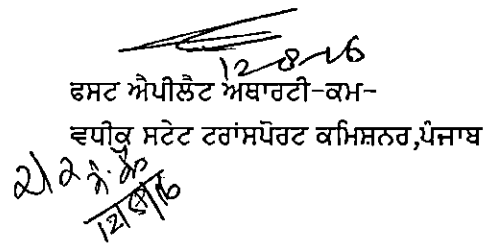 12-8-16
ਫਸਟ ਐਪੀਲੈਟ ਅਥਾਰਟੀ-ਕਮ-
ਵਧੀਕ ਸਟੇਟ ਟਰਾਂਸਪੋਰਟ ਕਮਿਸ਼ਨਰ,ਪੰਜਾਬ